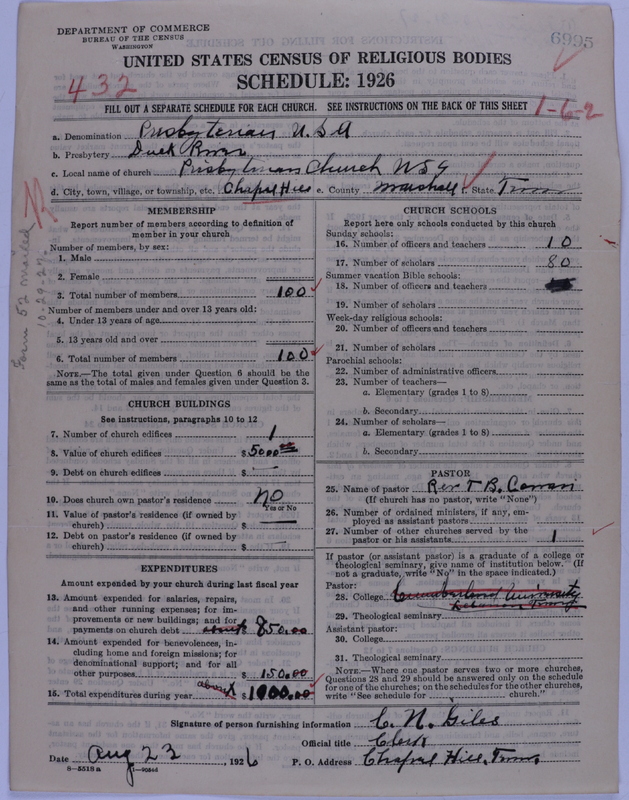 DEPARTMENT OF COMMERCE
BUREAU OF THE CENSUS
WASHINGTON
6995
UNITED STATES CENSUS OF RELIGIOUS BODIES
SCHEDULE: 1926
432
FILL OUT A SEPARATE SCHEDULE FOR EACH CHURCH. SEE INSTRUCTIONS ON THE BACK OF THIS SHEET
1-6-2
a. Denomination Presbyterian U.S.A
b. Presbytery Duck River
c. Local name of church Presbyterian Church USA
d. City, town, village, or township, etc. Chapel Hill e. County Marshall f. State Tenn
Form 52 mailed
10-29-27
MEMBERSHIP
Report number of members according to definition of
member in your church
Number of members, by sex:
1. Male
2. Female
3. Total number of members 100
Number of members under and over 13 years old:
4. Under 13 years of age
5. 13 years old and over
6. Total number of members 100
NOTE.—The total given under Question 6 should be the
same as the total of males and females given under Question 3.
CHURCH BUILDINGS
See instructions, paragraphs 10 to 12
7. Number of church edifices 1
8. Value of church edifices $5000
9. Debt on church edifices $ —
10. Does church own pastor's residence NO
Yes or No
11. Value of pastor's residence (if owned by
church) $ —
12. Debt on pastor's residence (if owned by
church) $ —
EXPENDITURES
Amount expended by your church during last fiscal year
13. Amount expended for salaries, repairs,
and other running expenses; for im-
provements or new buildings; and for
payments on church debt about $ 850.00
14. Amount expended for benevolences, in-
cluding home and foreign missions; for
denominational support; and for all
other purposes $ 150.00
15. Total expenditures during year about $ 1000.00
CHURCH SCHOOLS
Report here only schools conducted by this church
Sunday schools:
16. Number of officers and teachers 10
17. Number of scholars 80
Summer vacation Bible schools:
18. Number of officers and teachers
19. Number of scholars
Week-day religious schools:
20. Number of officers and teachers
21. Number of scholars
Parochial schools:
22. Number of administrative officers
23. Number of teachers—
a. Elementary (grades 1 to 8)
b. Secondary
24. Number of scholars—
a. Elementary (grades 1 to 8)
b. Secondary
PASTOR
25. Name of pastor Rev T B
(If church has no pastor, write "None")
26. Number of ordained ministers, if any, em-
ployed as assistant pastors
27. Number of other churches served by the
pastor or his assistants 1
If pastor (or assistant pastor) is a graduate of a college or
theological seminary, give name of institution below. (If
not a graduate, write "No" in the space indicated.)
Pastor:
28. College Cumberland University
Lebanon Tenn
29. Theological seminary
Assistant pastor:
30. College
31. Theological seminary
NOTE.—Where one pastor serves two or more churches,
Questions 28 and 29 should be answered only on the schedule
for one of the churches; on the schedules for the other churches,
write "See schedule for ........ church."
Signature of person furnishing information C. N. Giles
Official title Clerk
Date Aug 23, 1926 P. O. Address Chapel Hill, Tenn.
8—5518a